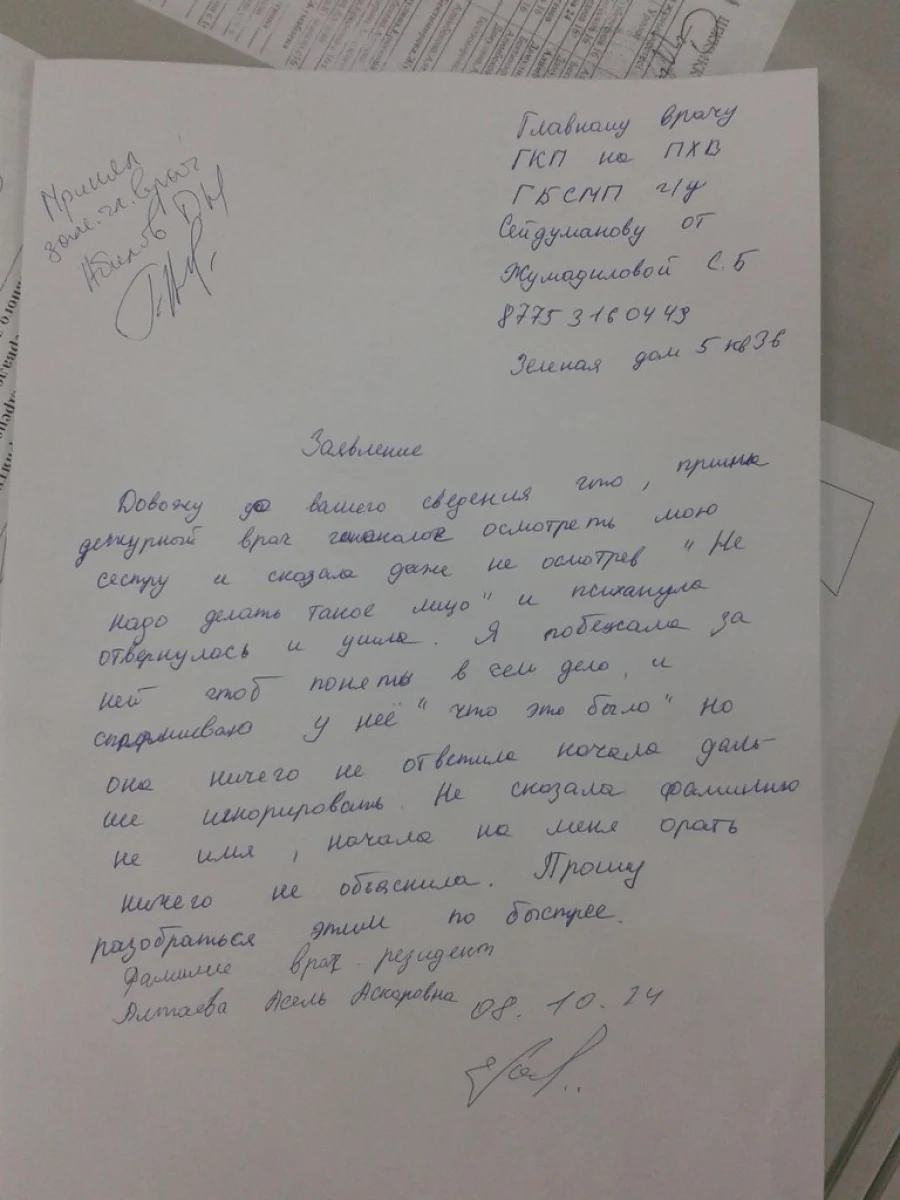 Принял
зам. гл. врач
Главному врачу
ГКП на ПХВ
ГБСМП г/у
Сейдуманову от
Жумадиловой С.Б
87753160449
Зеленая дом 5 кв 36
Заявление
Довожу до вашего сведения что, пришла
дежурный врач осмотреть мою
сестру и сказала даже не осмотрев "Не
надо делать такое лицо" и психанула
отвернулась и ушла. Я побежала за
ней чтоб понять в чем дело, и
спрашиваю у неё "что это было" но
она ничего не ответила начала даль-
ше игнорировать. Не сказала фамилию
не имя, начала на меня орать
ничего не объяснила. Прошу
разобраться этим по быстрее.
Фамилие врач. резидент
Алтаева Асель Аскаровна 08.10.24